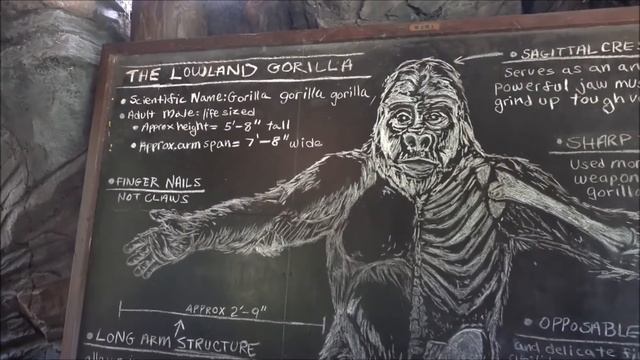 THE LOWLAND GORILLA
• Scientific Name: Gorilla gorilla gorilla,
• Adult Male: life sized
• Approx height = 5'-8" tall
• Approx. arm span = 7'-8" wide
• FINGER NAILS
NOT CLAWS
APPROX 2'-9"
• LONG ARM STRUCTURE
• SAGITTAL CRE
Serves as an an
powerful jaw mus
grind up tough v
• SHARP
Used mo
weapon
gorill
• OPPOSABLE
and delicate